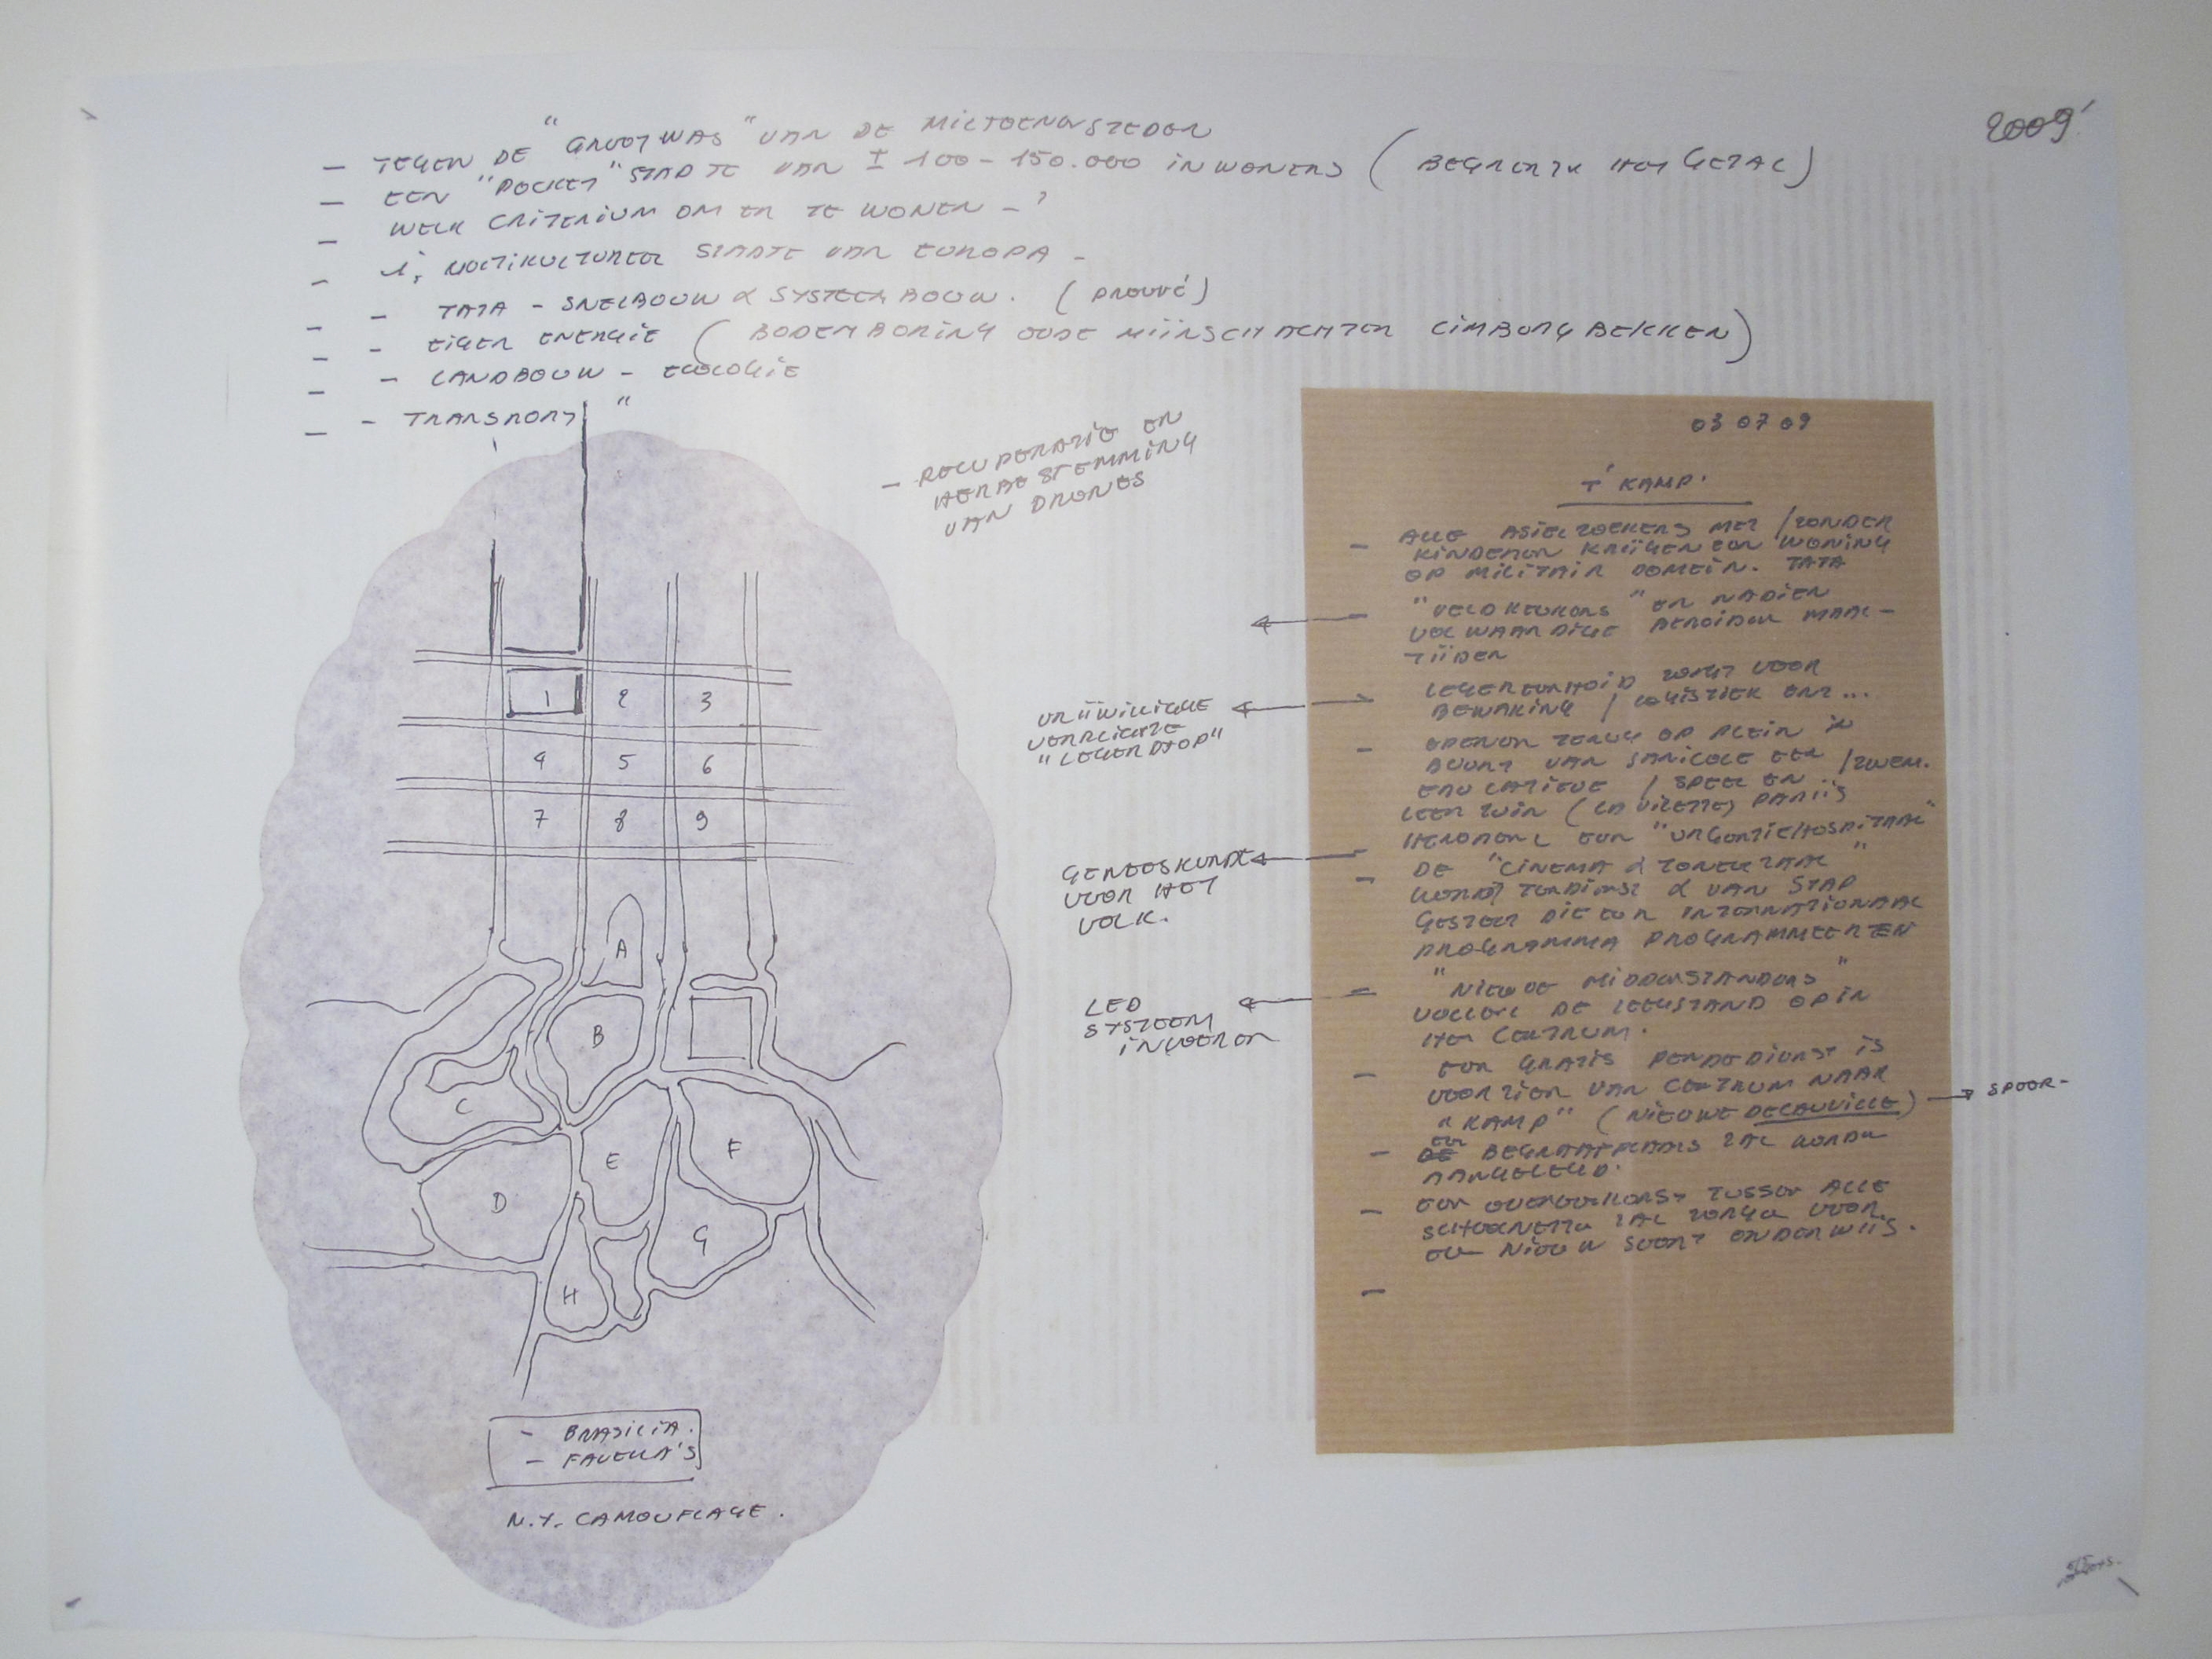 2009'
- TEGEN DE "GROOTWAS" VAN DE MILJOENENSTEDEN
- EEN "POCKET" STADTE VAN ± 100-150.000 INWONERS (BEGRENZE HET GETAL)
- WELK CRITERIUM OM ER TE WONEN - ?
- STADTE VAN EUROPA -
- - TATA - SNELBOUW & SYSTEEMBOUW. (PROUVÉ)
- - EIGEN ENERGIE (BODEMBORING OUDE MIJNSCHACHTEN LIMBURG BEKKEN)
- - LANDBOUW - ECOLOGIE
- - TRANSPORT "
- RECUPERATIE EN
HERBESTEMMING
VAN DRONES
1 2 3
4 5 6
7 8 9
A
B
C
D
E
F
G
H
- BRASILIA.
- FAVELLA'S
N.Y. CAMOUFLAGE.
VRIJWILLIGE
VERPLICHTE
"LEGERDROP"
GENEESKUNDE
VOOR HET
VOLK.
LED
SYSTEEM
INVOEREN
03 07 09
T' KAMP.
- ALLE ASIELZOEKERS MET / ZONDER
KINDEREN KRIJGEN EEN WONING
OP MILITAIR DOMEIN. TATA
- "VELDKEUKENS" EN NADIEN
VOLWAARDIGE BEREIDEN MAAL-
TIJDEN
- LEGEREENHEID ZORGT VOOR
BEWAKING / LOGISTIEK ENZ...
- OPENEN TERUG OP PLEIN IN
BUURT VAN SANICOLE EEN / ZWEM.
EDUCATIEVE / SPEEL EN
LEER TUIN (LA VILETTE) PARIJS
- HEROPENT EEN "URGENTIEHOSPITAAL"
- DE "CINEMA & TONEELZAAL"
WORDT TENDIENST & VAN STAP
GESTELD DIE EEN INTERNATIONAAL
PROGRAMMA PROGRAMMEERTEN
- "NIEUWE MIDDENSTANDERS"
VULLEN DE LEEGSTAND OP IN
HET CENTRUM.
- EEN GRATIS PENDEDIENST IS
VOORZIEN VAN CENTRUM NAAR
"KAMP" (NIEUWE DECAUVILLE) → SPOOR-
- EEN BEGRAAFPLAATS ZAL WORDEN
AANGELEGD.
- EEN OVEREENKOMST TUSSEN ALLE
SCHOOLNETTEN ZAL ZORGEN VOOR
EEN NIEUW SOORT ONDERWIJS.
-